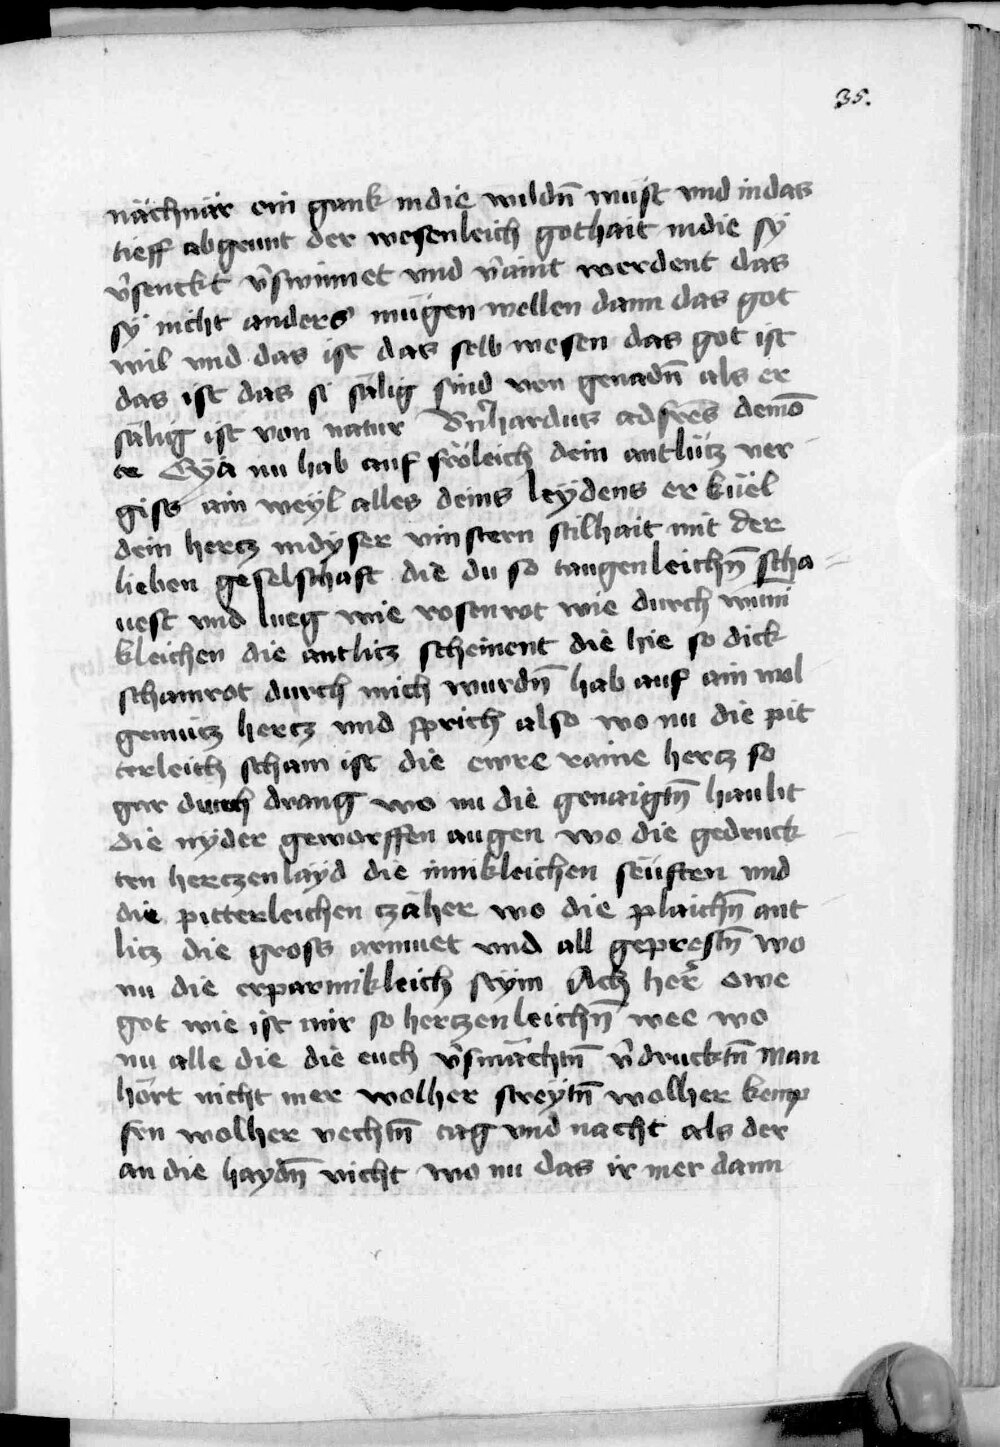 35.
nächnär ein gank in die wildn̄ wüst vnd in das
tieff abgrunt der wesenleich gothait in die sy
v̄senckt v̄swinnet vnd v̄aint werdent das
sy nicht anders mügen wellen dann das got
wil vnd das ist das selb wesen das got ist
das ist das si sälig sind von genadn̄ als er
sälig ist von natur Bn̄hardus ad frēs de mō
te Eyä nu hab auf fröleich dein antlütz ver
giss ain weyl alles deins leydens er küel
dein hertz in dyser vinstern stilhait mit der
lieben geselschaft die du so taugenleichn̄ scha
uest vnd lueg wie rosenrot wie durch wuni
kleichen die antlitz scheinent die hie so dick
schamrot durch mich wurdn̄ hab auf ain wol
gemütz hertz vnd sprich also wo nu die pit
terleich scham ist die ewre raine hertz so
gar durch drang wo nu die genaigtn̄ haubt
die nyder geworffen augen wo die gedruck
ten hertzenlayd die innikleichen seüften vnd
die pitterleichen zäher wo die plaichn̄ ant
litz die gross armuet vnd all geprestn̄ wo
nu die erparmikleich stym Ach her̄ owe
got wie ist mir so hertzenleichn̄ wee wo
nu alle die die euch v̄smächtn̄ v̄drucktn̄ Man
hört nicht mer wolher streytn̄ wolher kemp
fen wolher vechtn̄ tag vnd nacht als der
an die haydn̄ vicht wo nu das ir mer dann